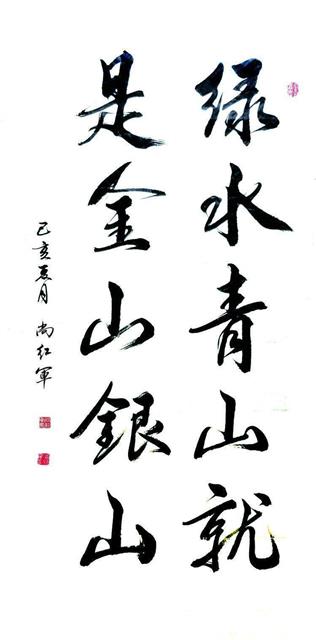 绿水青山就
是金山銀山
己亥夏月 尚红軍